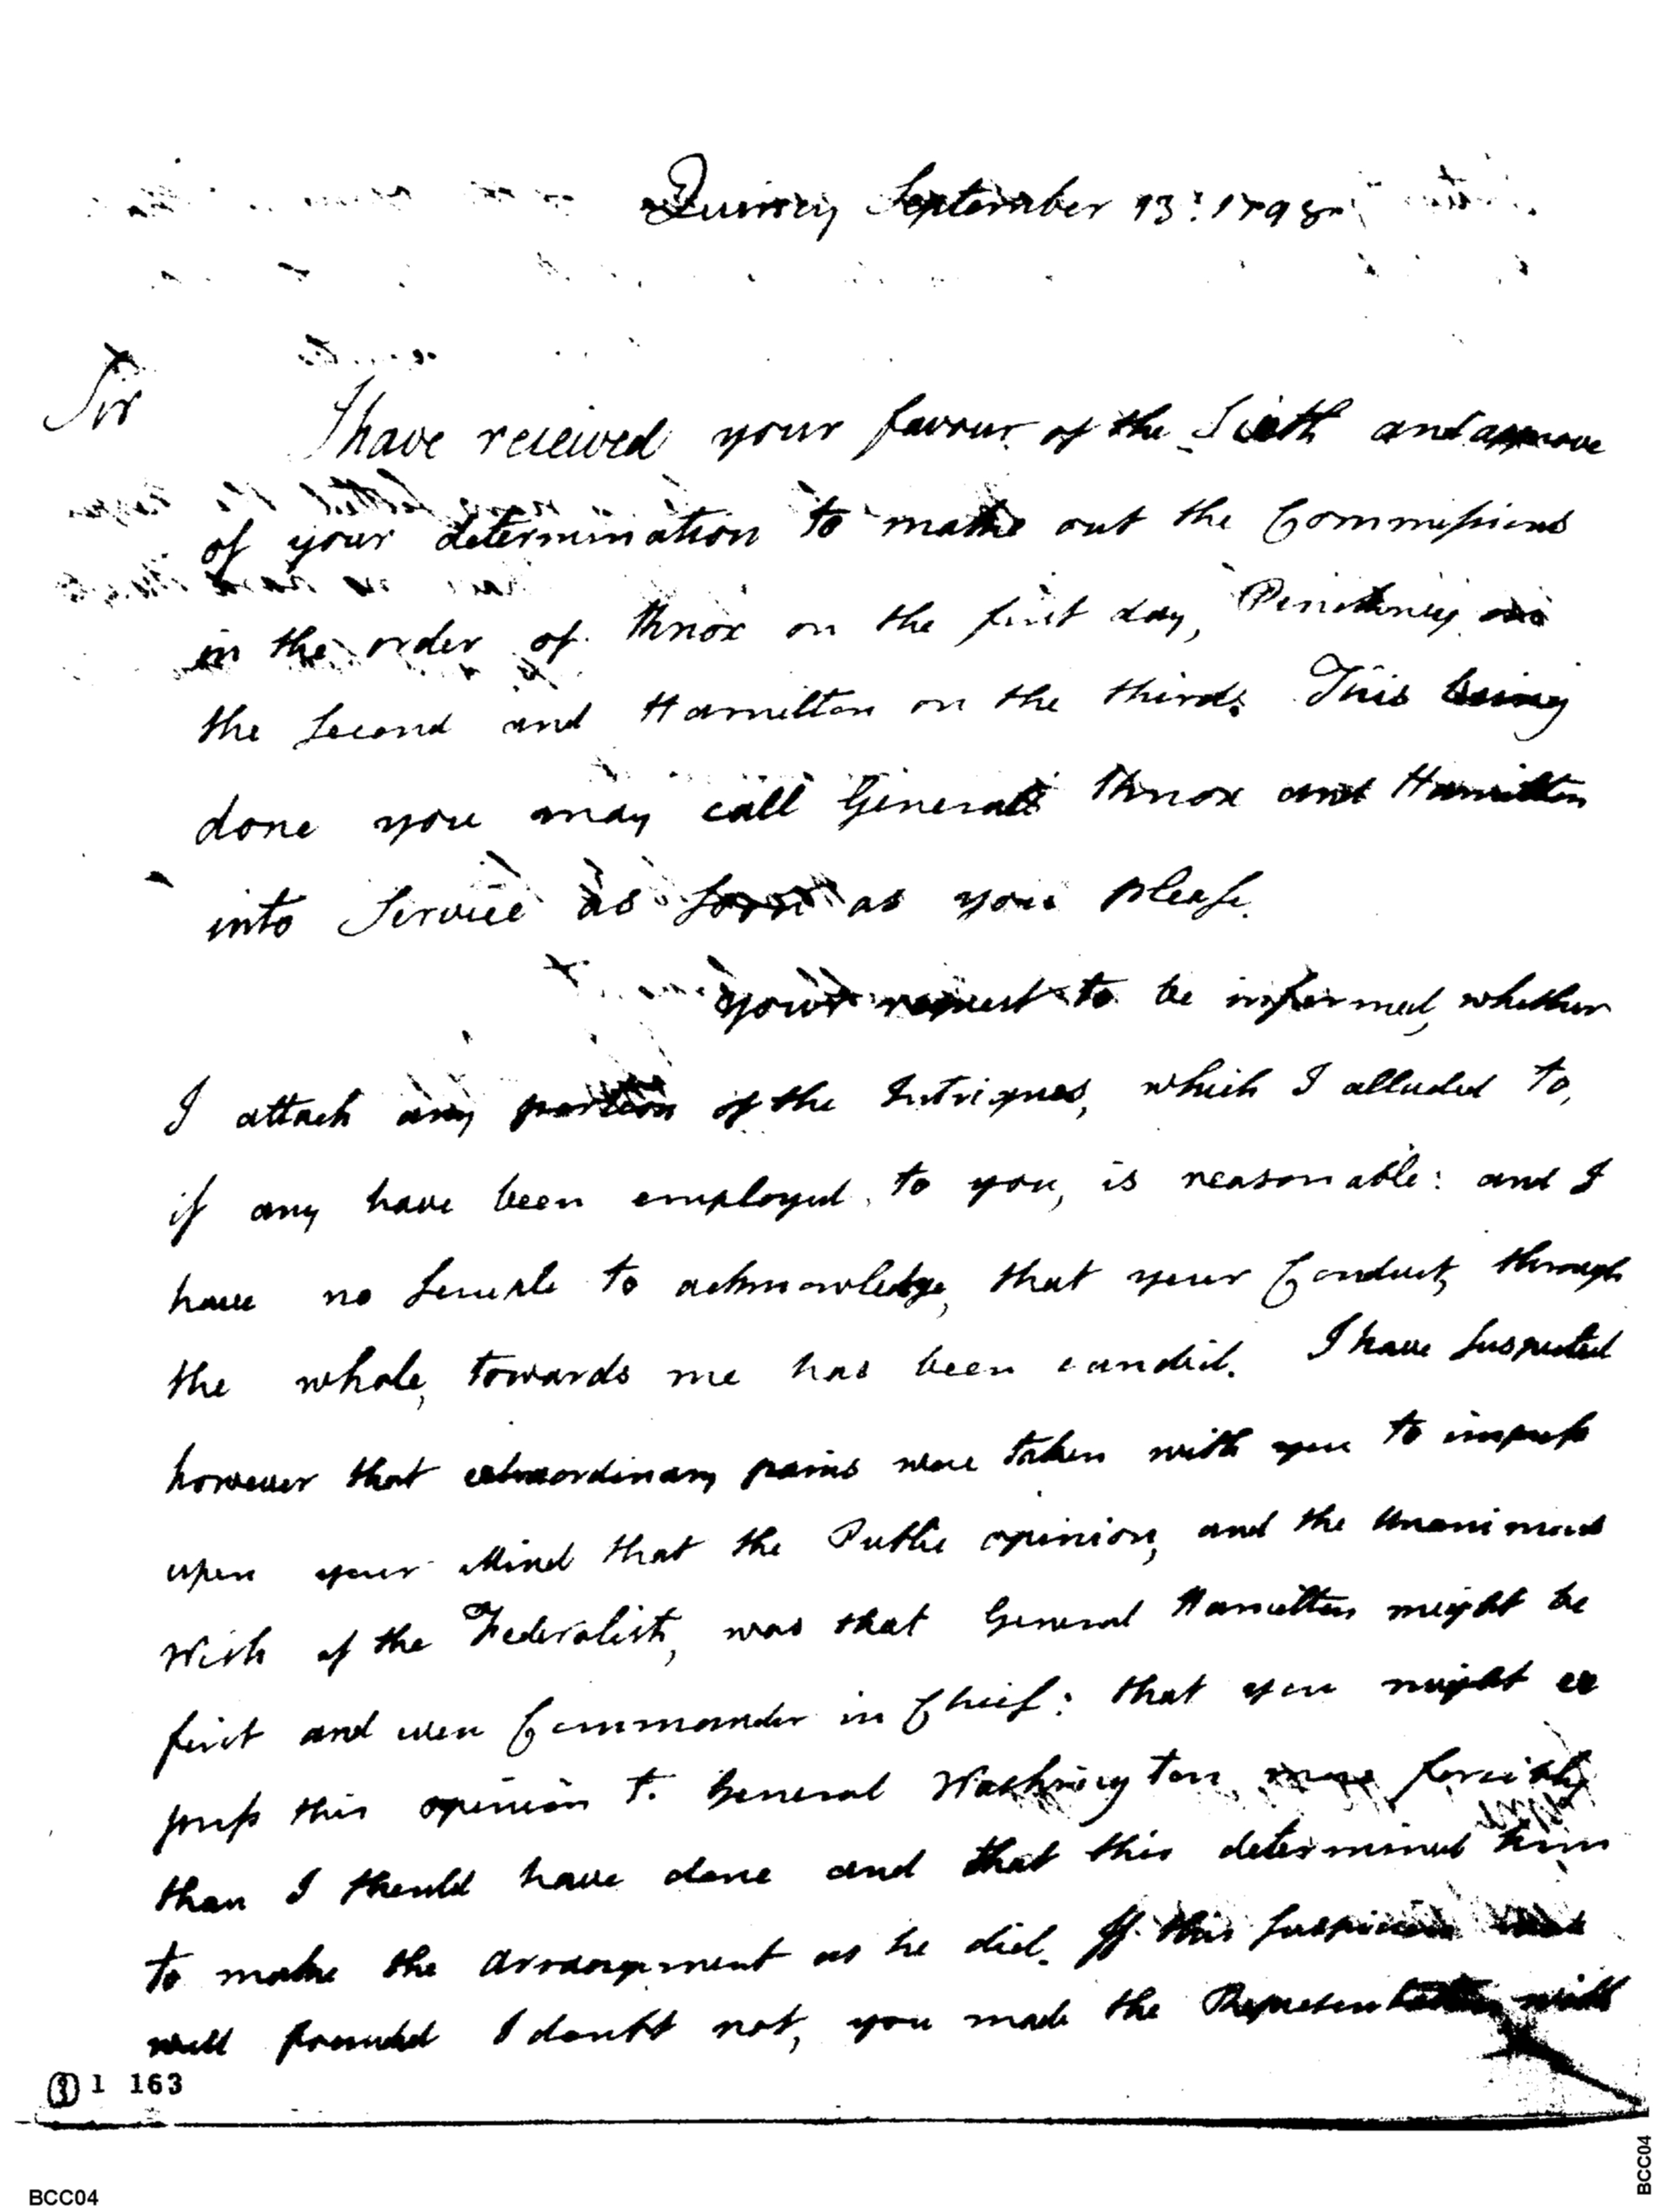 Quincy September 13. 1798
Sir
I have received your favour of the Sixth and approve
of your determination to make out the Commissions
in the order of Knox on the first day, Pinckney on
the Second and Hamilton on the third. This being
done you may call Generals Knox and Hamilton
into Service as Soon as you please.
Your request to be informed, whether
I attach any portion of the Intrigues, which I alluded to,
if any have been employed, to you, is reasonable: and I
have no Scruple to acknowledge, that your Conduct, through
the whole, towards me has been candid. I have Suspected
however that extraordinary pains were taken with you to impress
upon your Mind that the Public opinion, and the unanimous
Wish of the Federalists, was that General Hamilton might be
first and even Commander in Chief: that you might ex
press this opinion to General Washington more forcibly
than I should have done and that this determined him
to make the arrangement as he did. If this Suspicion was
well founded I doubt not, you made the Representation with
1 163
BCC04
BCC04